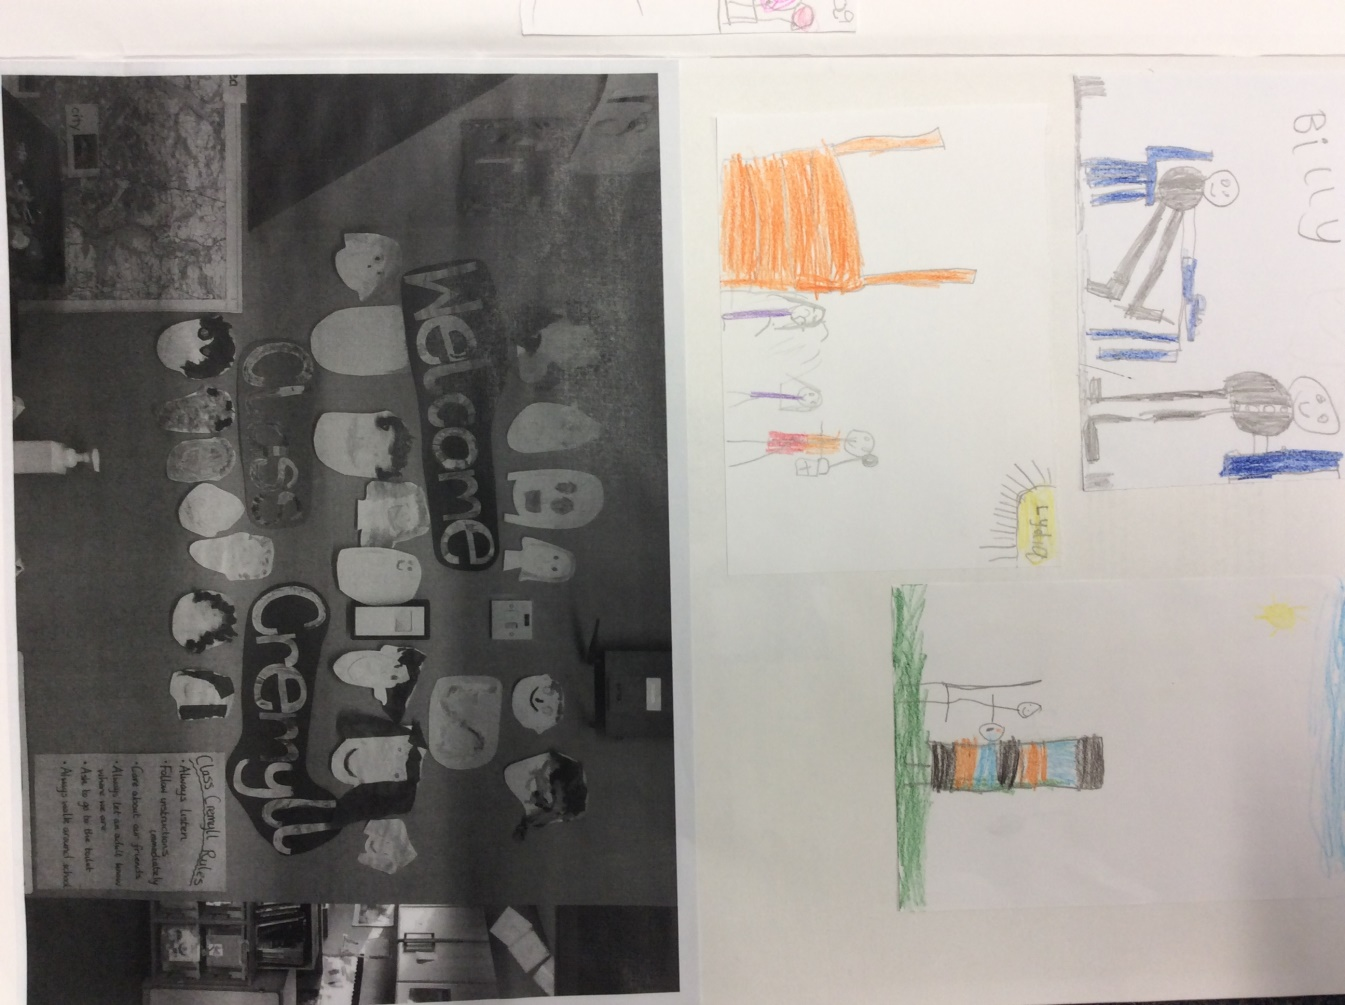 Welcome
Class
Cremyll
Class Cremyll Rules
• Always listen
• Follow instructions
immediately
• Care about our friends
• Always let an adult know
where we are
• Ask to go to the toilet
• Always walk around school
city
Billy
Lydia